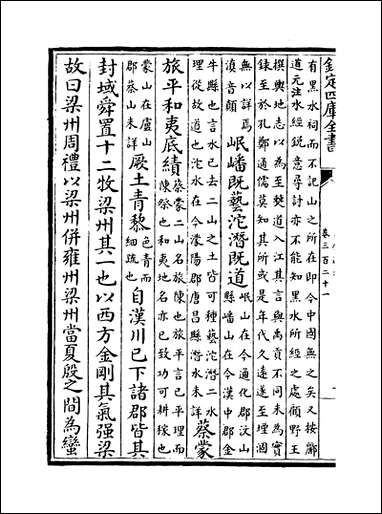 欽定四庫全書
卷三百二十一
有黑水祠而不記山之所在即今中國無之矣又按酈
道元注水經銳意尋討亦不能知黑水所經之處顧野王
撰輿地志以為至僰道入江其言與禹貢不同未為實
録至於孔鄭通儒莫知其所或是年代久遠遂至堙涸
無以詳焉
滇音顛
岷嶓既藝沱潛既道
岷山在今通化郡汶山
縣嶓山在今漢中郡金
牛縣也言水已去二山之土皆可種藝沱潛二水
理從故道也沱水在今濛陽郡唐昌縣潛水未詳
蔡蒙
旅平和夷底績
蔡蒙二山名旅陳也旅平言已平理而
陳祭也和夷地名亦已致功可耕稼也
蒙山在盧山
郡蔡山未詳
厥土青黎
色青而
細疏也
自漢川已下諸郡皆其
封域舜置十二牧梁州其一也以西方金剛其氣强梁
故曰梁州周禮以梁州併雍州梁州當夏殷之間為蠻